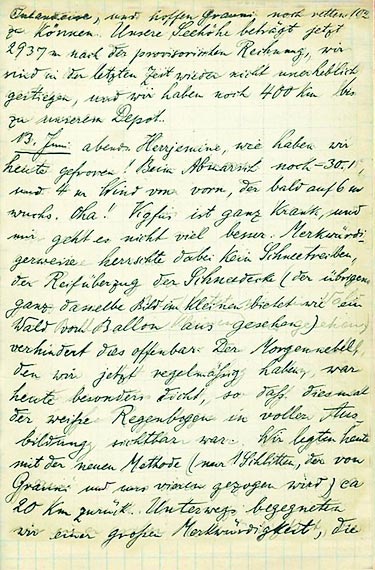 und hoffen Grauni noch retten 102
zu können. Unsere Seehöhe beträgt jetzt
2937 m nach der provisorischen Rechnung, wir
sind in der letzten Zeit wieder nicht unerheblich
gestiegen, und wir haben noch 400 km bis
zu unserem Depot.
13. Juni abends Herrjemine, wie haben wir
heute gefroren! Beim Abmarsch noch -30.
und 4 m Wind von vorn, der bald auf 6 m
wuchs. Oha! Vigfus ist ganz krank, und
mir geht es nicht viel besser. Merkwürdi-
gerweise herrschte dabei kein Schneetreiben,
der Reifüberzug der Schneedecke (der übrigens
ganz dasselbe Bild im Kleinen bietet wie ein
Wald vom Ballon aus gesehen)
verhindert das offenbar. Der Morgennebel,
den wir jetzt regelmäßig haben, war
heute besonders dicht, so daß diesmal
der weiße Regenbogen in voller Aus
bildung sichtbar war. Wir legten heute
mit der neuen Methode (nur 1 Schlitten, der von
Grauni und uns vieren gezogen wird) ca
20 km zurück. Unterwegs begegneten
wir einer großen Merkwürdigkeit, die